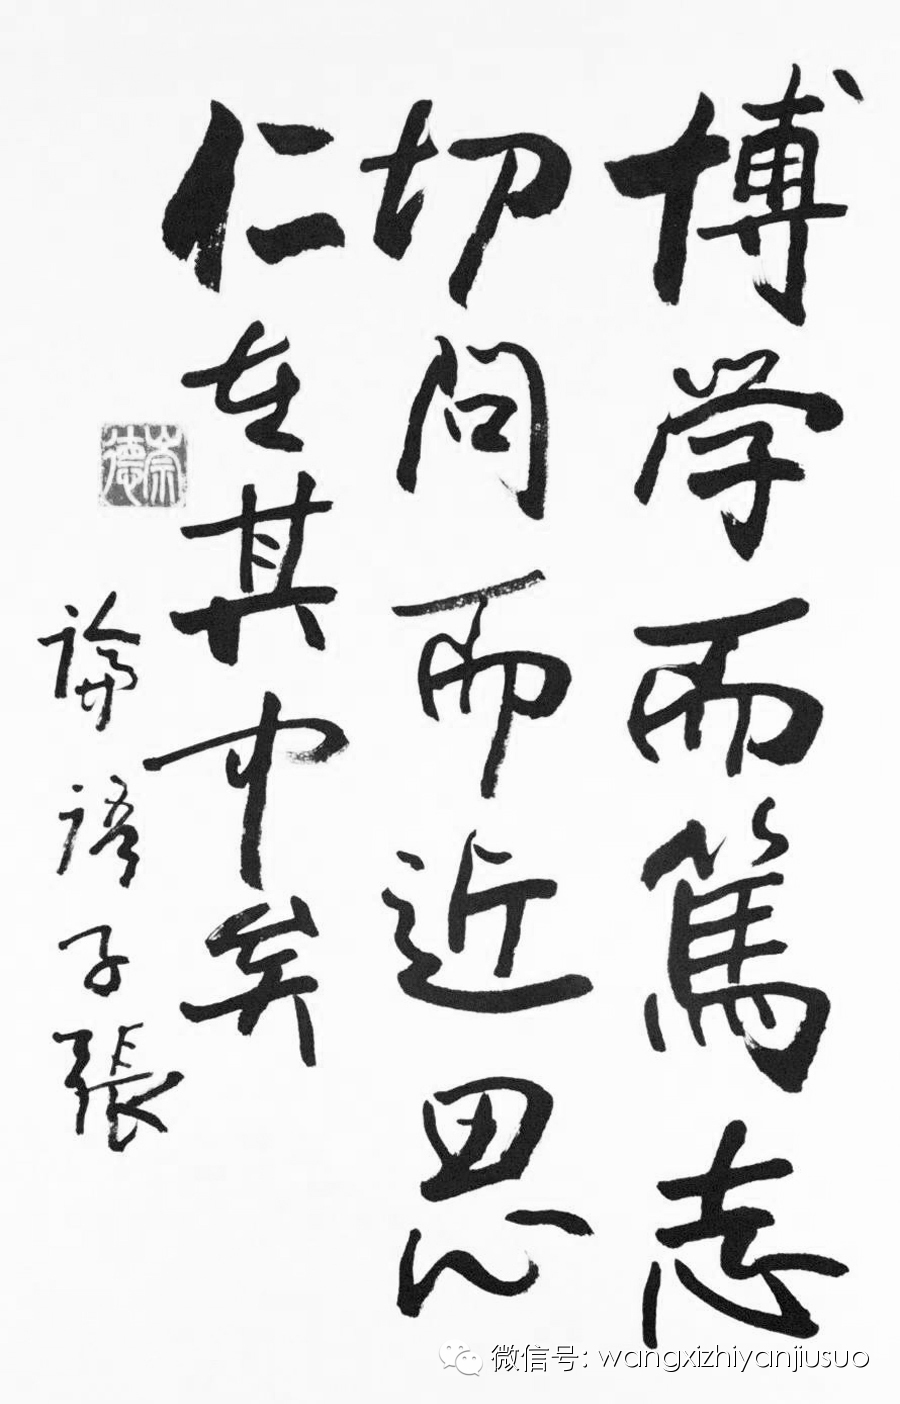 博学而篤志
切问而近思
仁在其中矣
論語子張
崇德
微信号: wangxizhiyanjiusuo